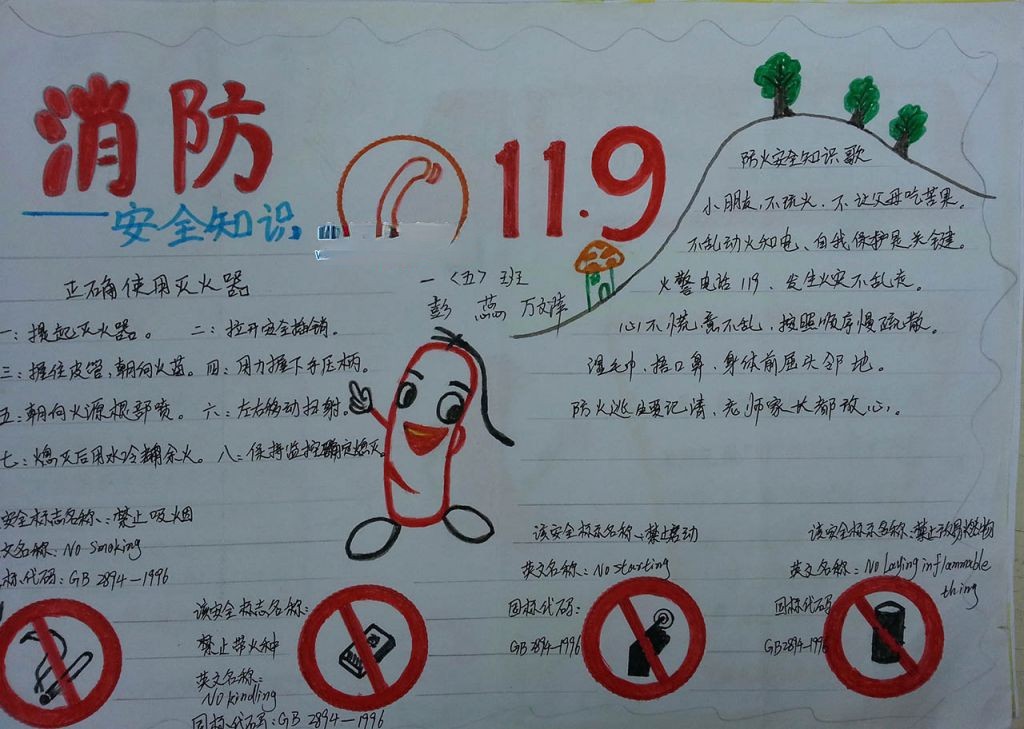 消防
——安全知识
11.9
一〈五〉班
彭 蕊 万文
正确使用灭火器
一：提起灭火器。 二：拉开安全插销。
三：握住皮管，朝向火蓝。四：用力握下手压柄。
五：朝向火源根部喷。 六：左右移动扫射。
七：熄灭后用水冷却余火。八：保持监控确定熄灭。
防火安全知识歌
小朋友，不玩火，不让父母吃苦果。
不乱动火和电、自我保护是关键。
火警电话119、发生火灾不乱走。
心不慌意不乱，按照顺序慢疏散。
湿毛巾，捂口鼻，身体前屈头邻地。
防火逃生要记清，老师家长都放心。
安全标志名称：禁止吸烟
文名称：No Smoking
标代码：GB 2894—1996
该安全标志名称：
禁止带火种
英文名称：
No kindling
国标代码：GB 2894—1996
该安全标示名称、禁止启动
英文名称：No starting
国标代码：
GB 2894-1996
该安全标示名称：禁止放易燃物
英文名称：No Laying inflammable
thing
国标代码
GB 2894-1996